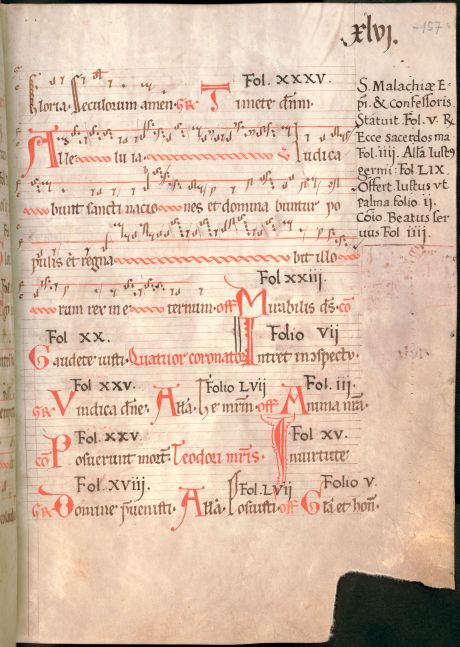 xlvj.
-157-
Fol. XXXV.
Gloria. Seculorum amen. GR Timete dnm.
Alle luia V Iudica
bunt sancti nacio nes et domina buntur po
pulis et regna bit illo
Fol xxiij.
rum rex in e ternum. off Mirabilis ds. co
Fol XX. Folio VII
Gaudete iusti. Quatuor coronator Intret in spectu.
Fol. XXV. Folio LVII Fol. iij.
GR Vindica dne. Alla. Te mrm. off Anima nra.
Fol. XXV. Fol XV.
co Posuerunt mort. Teodori mris. In uirtute
Fol. XVIII. Fol. LVII Folio V.
GR Domine preuenisti. Alla. Posuisti. off Gla et hon.
S. Malachiæ E-
pi. & Confessoris.
Statuit Fol. V. R
Ecce sacerdos ma
Fol. iiij. Alla Iust9
germi: Fol LIX.
Offert. Iustus vt
palma folio ij.
Coio. Beatus ser
uus Fol IIII.